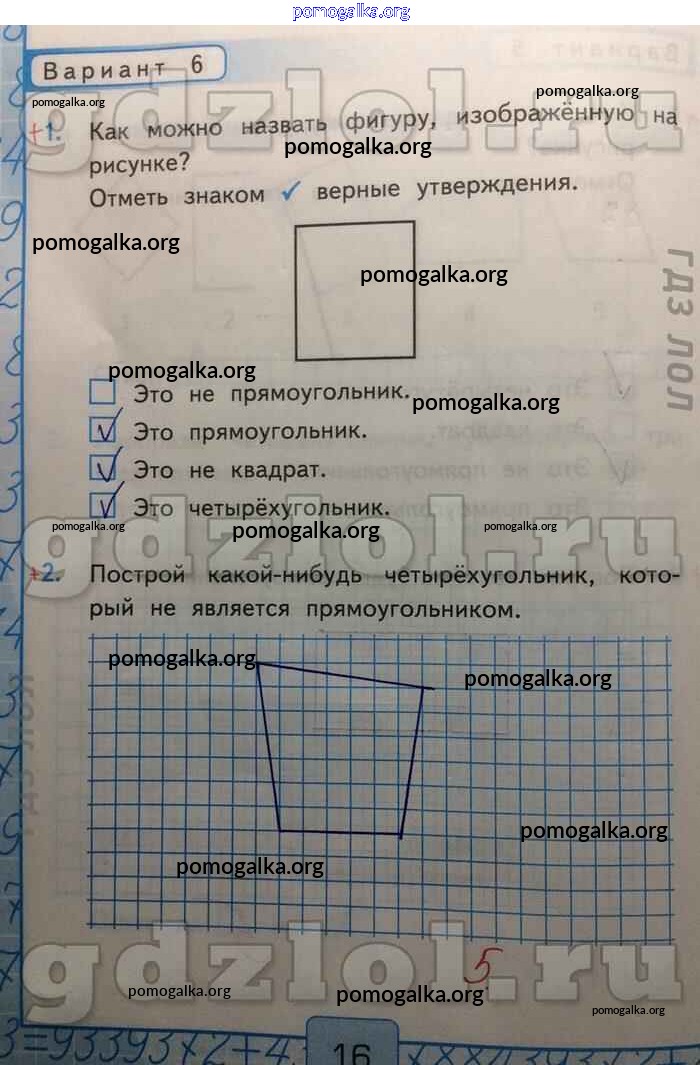 pomogalka.org
Вариант 6
pomogalka.org
pomogalka.org
gdzlol.ru
+1. Как можно назвать фигуру, изображённую на
рисунке?
pomogalka.org
Отметь знаком ✓ верные утверждения.
pomogalka.org
pomogalka.org
ГДЗ ЛОЛ
pomogalka.org
Это не прямоугольник.
pomogalka.org
V Это прямоугольник.
V Это не квадрат.
V Это четырёхугольник.
pomogalka.org
pomogalka.org
pomogalka.org
gdzlol.ru
+2. Построй какой-нибудь четырёхугольник, кото-
рый не является прямоугольником.
pomogalka.org
pomogalka.org
ГДЗ ЛОЛ
pomogalka.org
pomogalka.org
5
gdzlol.ru
pomogalka.org
pomogalka.org
pomogalka.org
16